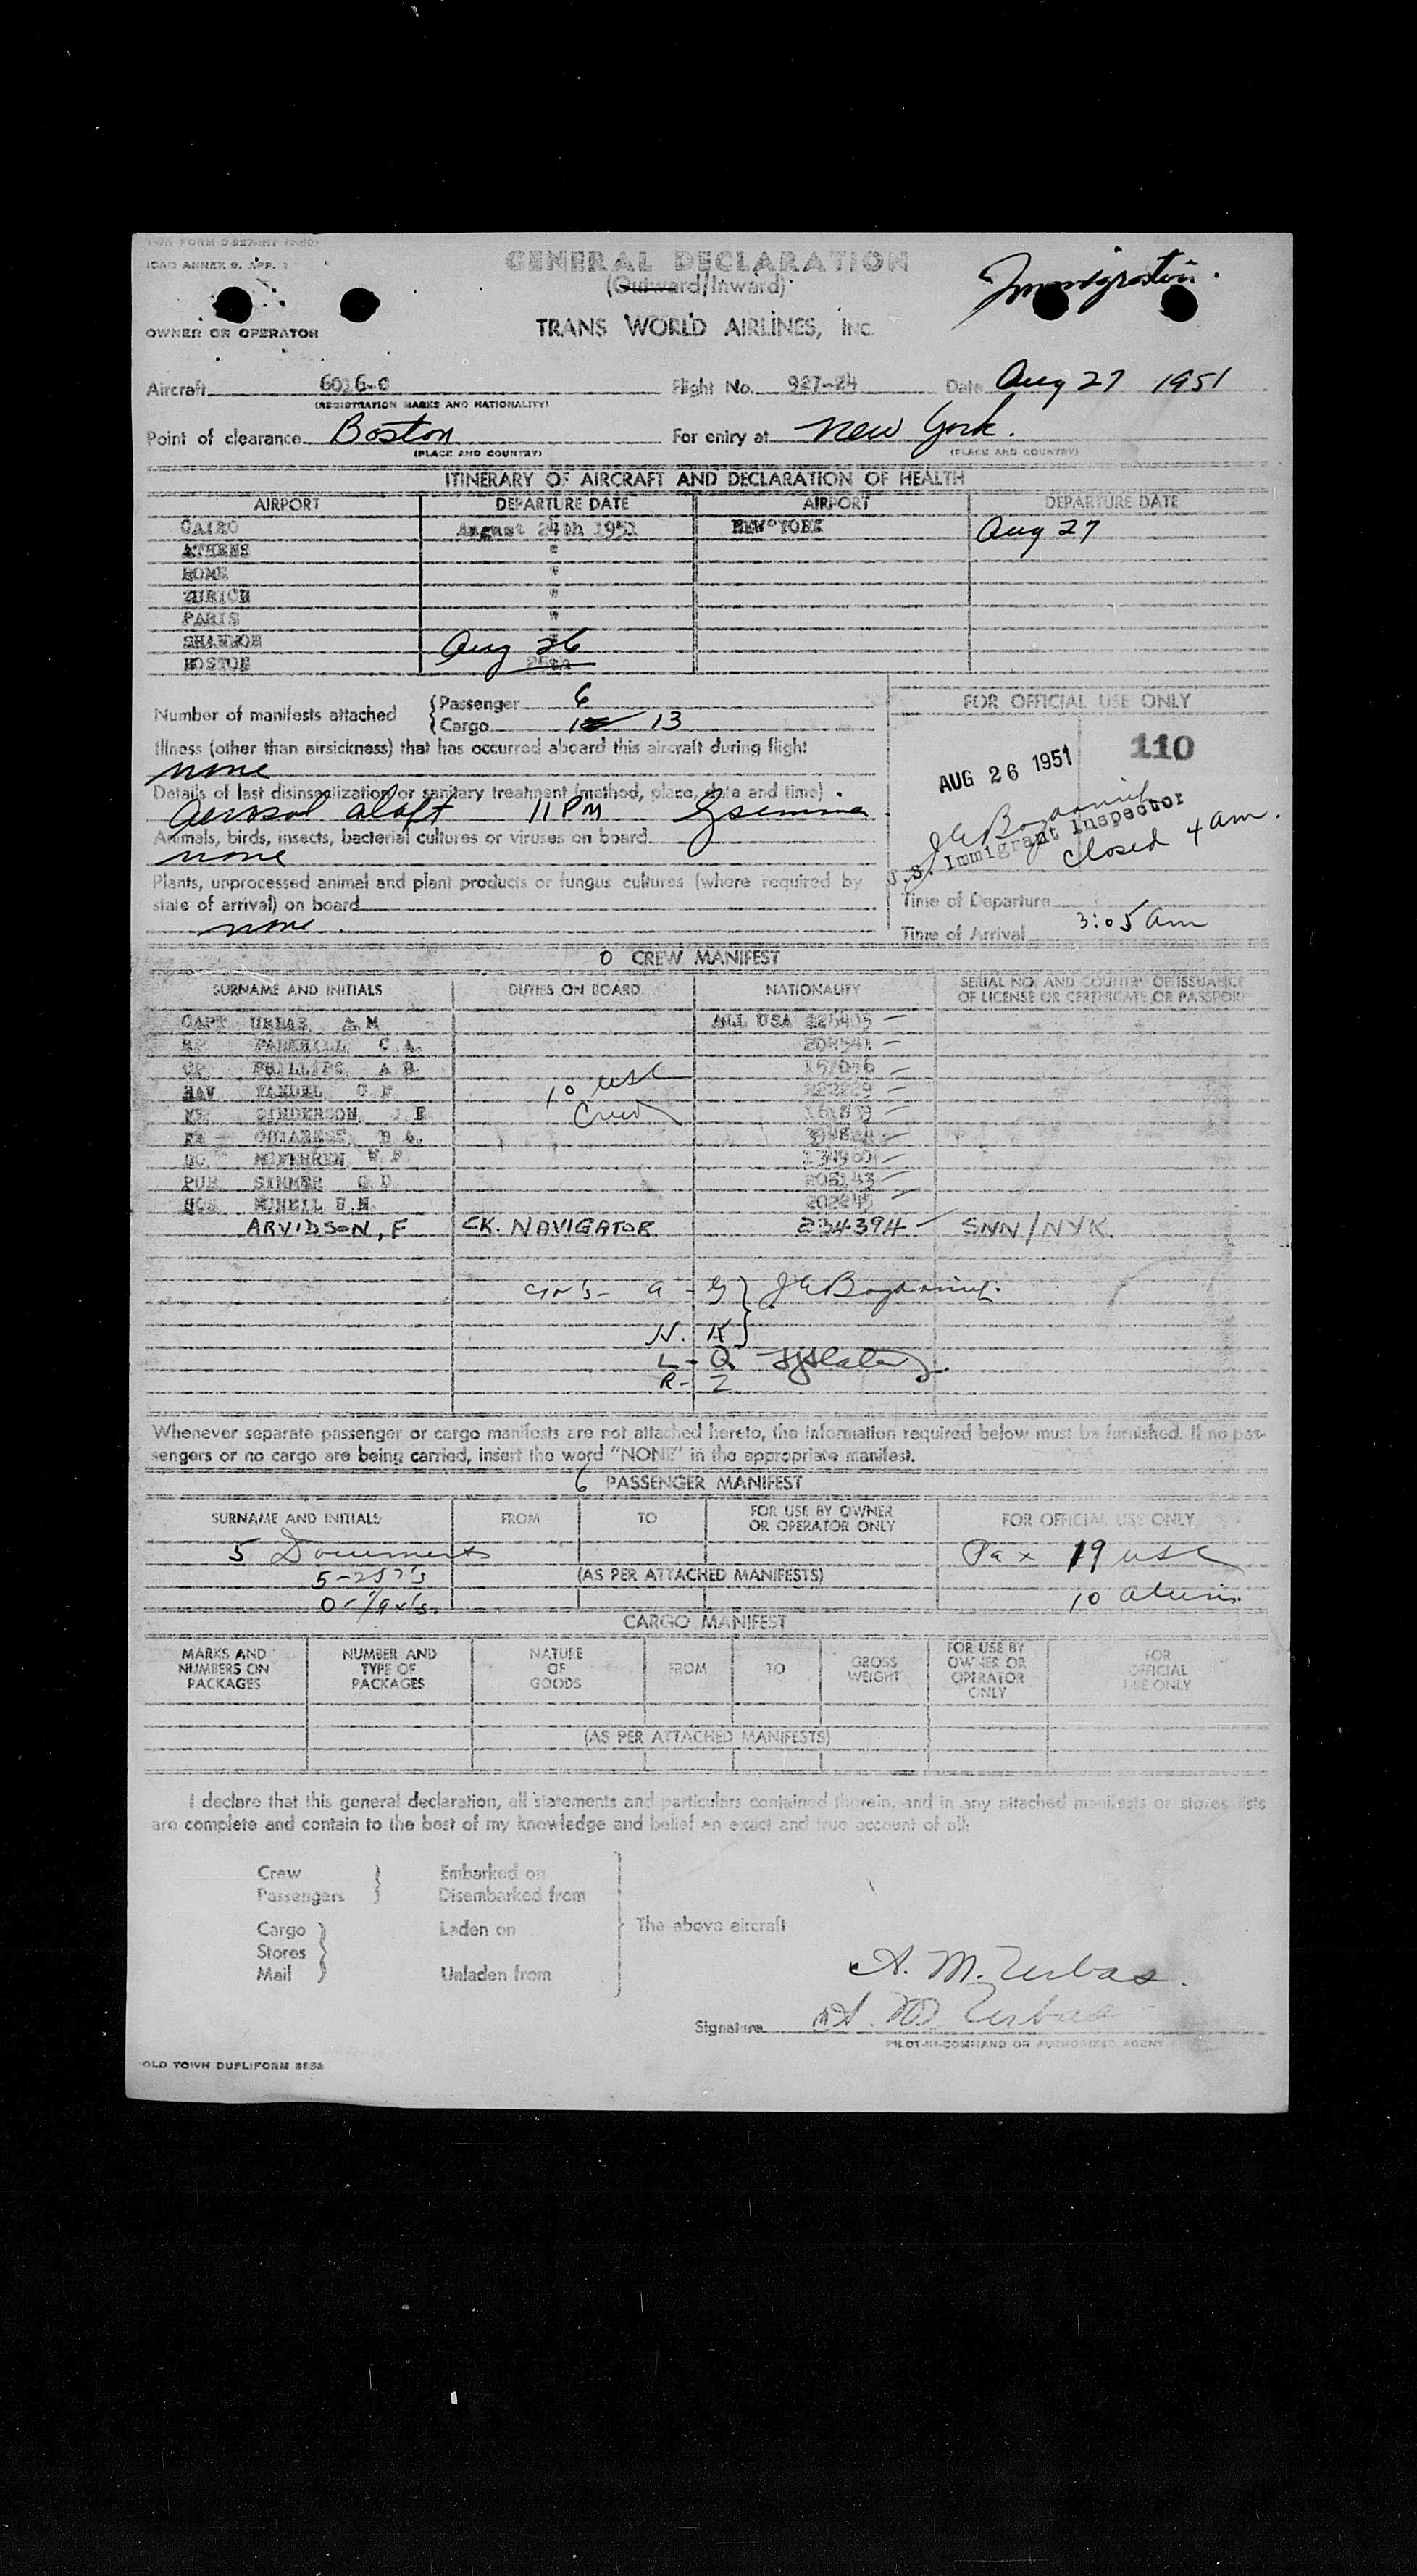 TWA FORM O-927-INT
ICAO ANNEX 9, APP. 1
GENERAL DECLARATION
(Outward/Inward)
Immigration.
OWNER OR OPERATOR
TRANS WORLD AIRLINES, INC.
Aircraft 6016-C Flight No. 927-24 Date Aug 27 1951
(REGISTRATION MARKS AND NATIONALITY)
Point of clearance Boston For entry at New York.
(PLACE AND COUNTRY) (PLACE AND COUNTRY)
ITINERARY OF AIRCRAFT AND DECLARATION OF HEALTH
AIRPORT DEPARTURE DATE AIRPORT DEPARTURE DATE
CAIRO August 24th 1951 NEW YORK Aug 27
ATHENS "
ROME "
ZURICH "
PARIS "
SHANNON Aug 26
BOSTON 25th
Number of manifests attached
Passenger 6
Cargo 13
Illness (other than airsickness) that has occurred aboard this aircraft during flight
none
Details of last disinsectization or sanitary treatment (method, place, date and time)
Aerosol aloft 11 PM
Animals, birds, insects, bacterial cultures or viruses on board
none
Plants, unprocessed animal and plant products or fungus cultures (where required by
state of arrival) on board
none
FOR OFFICIAL USE ONLY
110
AUG 26 1951
U.S. Immigrant Inspector
Closed 4 am.
Time of Departure
Time of Arrival 3:05 am
0 CREW MANIFEST
SURNAME AND INITIALS DUTIES ON BOARD NATIONALITY SERIAL NO. AND COUNTRY OF ISSUANCE
OF LICENSE OR CERTIFICATE OR PASSPORT
CAPT URBAS A M ALL USA
PARKHILL C A.
PHILLIPS A
NAV YANDEL 10 USC
GINDERSON Crew
MCFERREN W F
PUR SIMMER G D
HOS
ARVIDSON, F CK. NAVIGATOR 234394 SNN/NYK.
a - G
H. K
L - Q
R - Z
Whenever separate passenger or cargo manifests are not attached hereto, the information required below must be furnished. If no pas-
sengers or no cargo are being carried, insert the word "NONE" in the appropriate manifest.
6 PASSENGER MANIFEST
SURNAME AND INITIALS FROM TO FOR USE BY OWNER
OR OPERATOR ONLY FOR OFFICIAL USE ONLY
5 Documents Pax 19 USC
5-257's (AS PER ATTACHED MANIFESTS)
10 aliens.
CARGO MANIFEST
MARKS AND
NUMBERS ON
PACKAGES
NUMBER AND
TYPE OF
PACKAGES
NATURE
OF
GOODS
FROM
TO
GROSS
WEIGHT
FOR USE BY
OWNER OR
OPERATOR
ONLY
FOR
OFFICIAL
USE ONLY
(AS PER ATTACHED MANIFESTS)
I declare that this general declaration, all statements and particulars contained therein, and in any attached manifests or stores lists
are complete and contain to the best of my knowledge and belief an exact and true account of all:
Crew Embarked on
Passengers Disembarked from
Cargo Laden on The above aircraft
Stores
Mail Unladen from
A. M. Urbas.
Signature A. M. Urbas
PILOT-IN-COMMAND OR AUTHORIZED AGENT
OLD TOWN DUPLIFORM